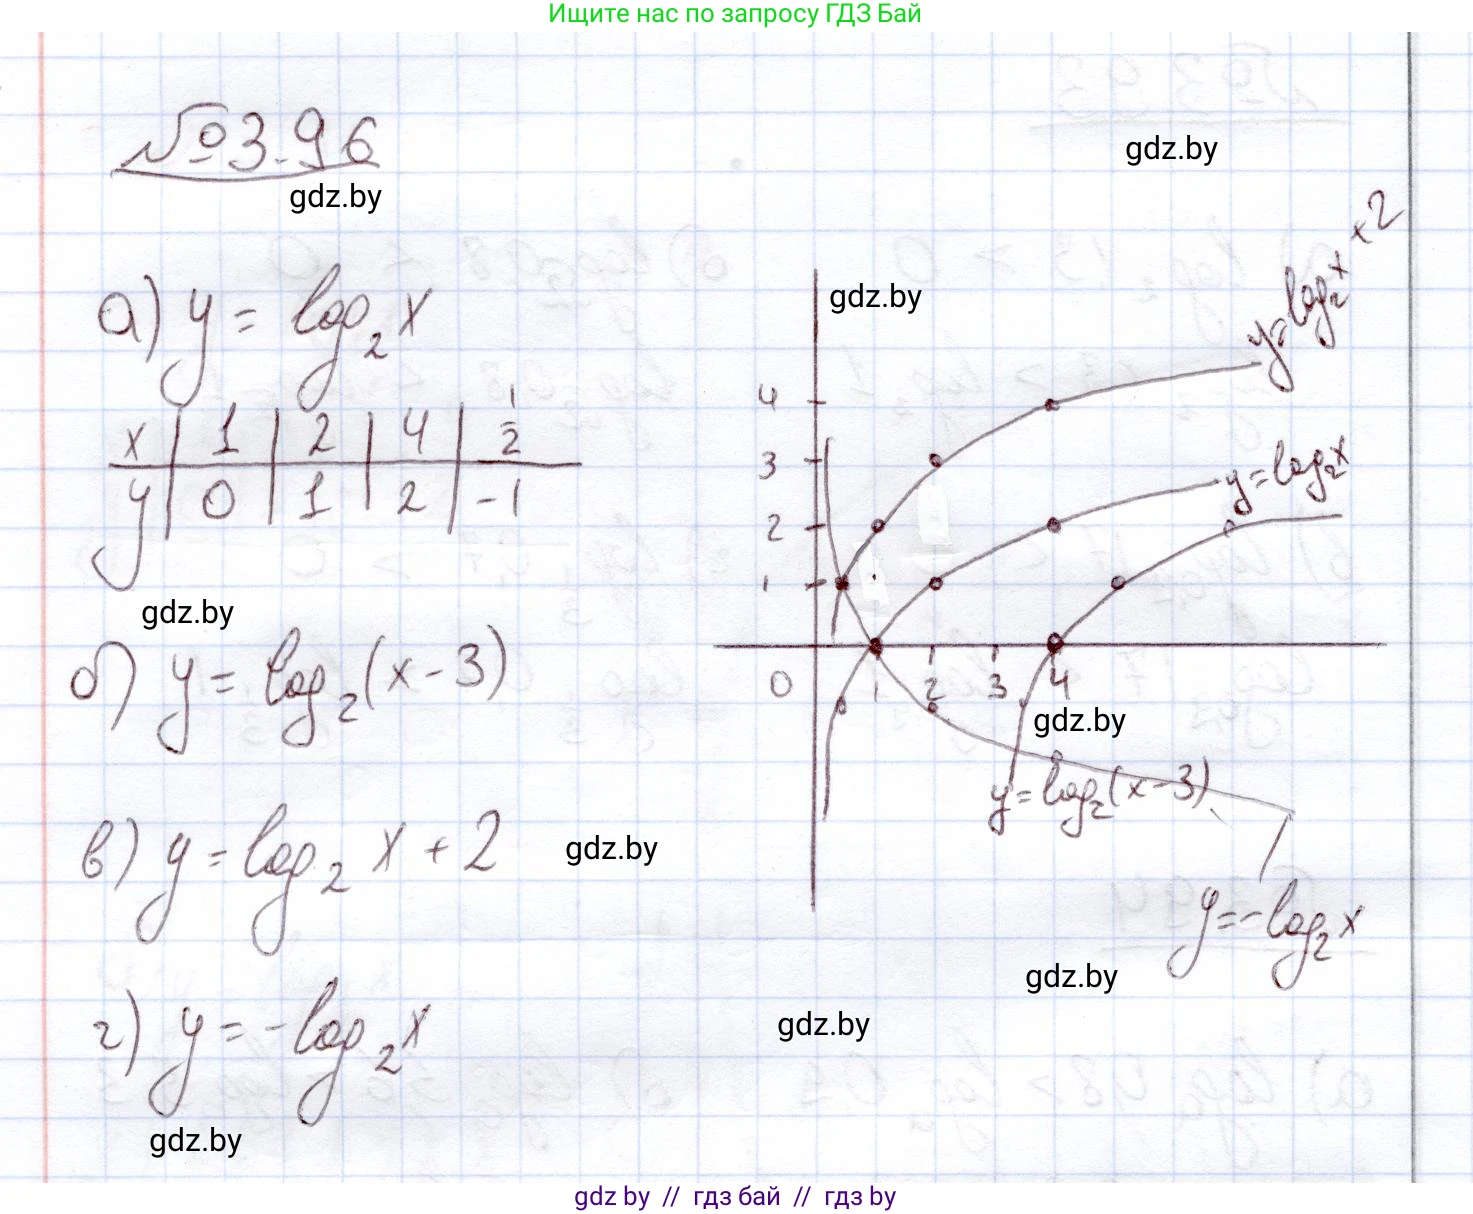 Ищите нас по запросу ГДЗ Бай
№3.96
gdz.by
gdz.by
а) y = log₂ x
x | 1 | 2 | 4 | 1/2
y | 0 | 1 | 2 | -1
gdz.by
б) y = log₂(x-3)
в) y = log₂ x + 2
gdz.by
г) y = -log₂ x
gdz.by
gdz.by
y = log₂ x + 2
4
3
2
1
y = log₂ x
0 1 2 3 4
gdz.by
y = log₂(x-3)
y = -log₂ x
gdz.by
gdz.by
gdz by // гдз бай // гдз by